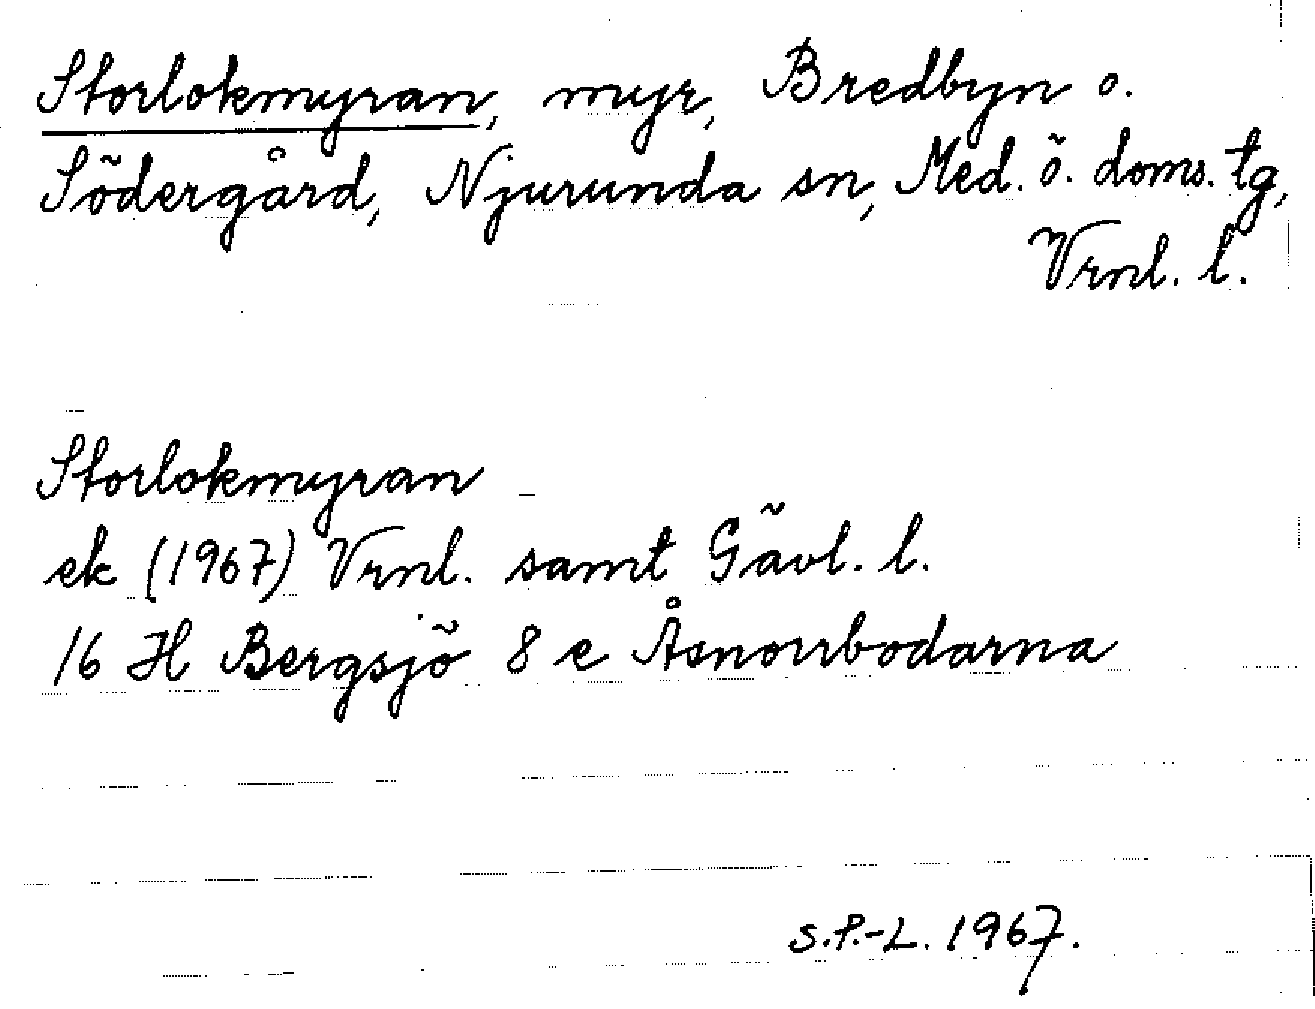 Storlokmyran, myr, Bredbyn o.
Södergård, Njurunda sn, Med. ö. doms. tg,
Vrnl. l.
Storlokmyran
ek (1967) Vrnl. samt Gävl. l.
16 H Bergsjö 8 e Åsnorrbodarna
S.P.-L. 1967.